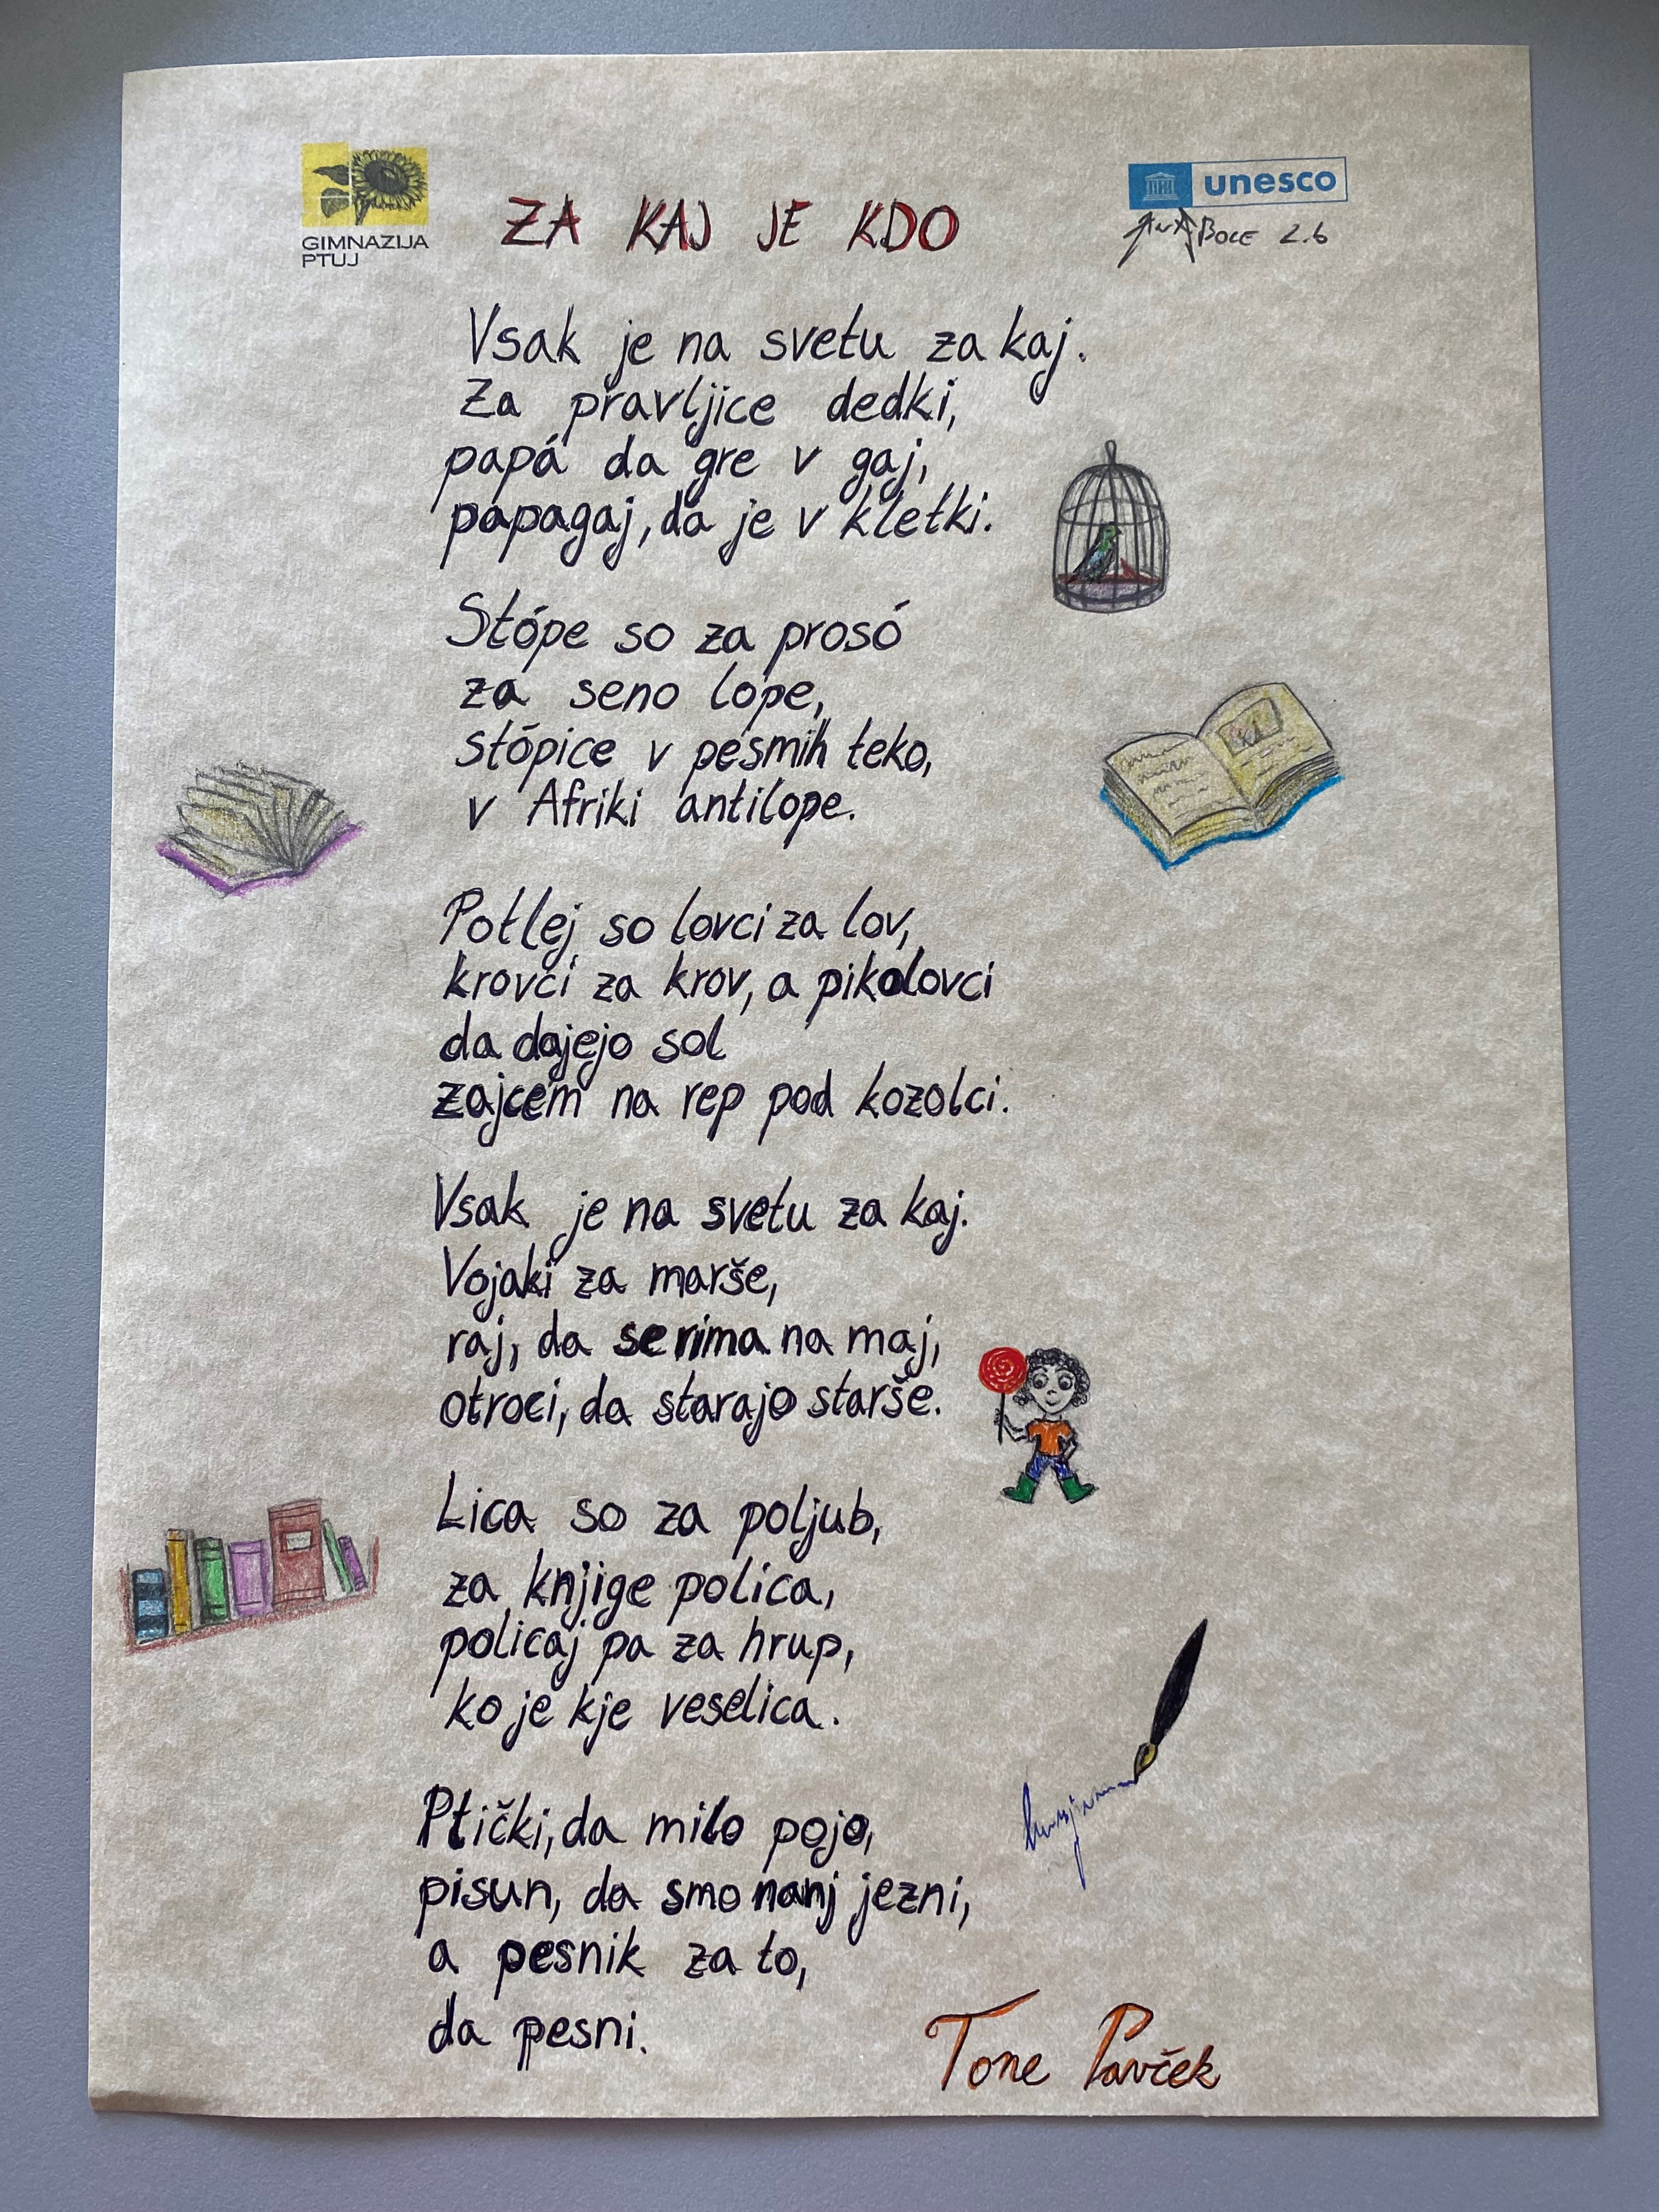 GIMNAZIJA
PTUJ
ZA KAJ JE KDO
unesco
2.b
Vsak je na svetu za kaj.
Za pravljice dedki,
papá da gre v gaj,
papagaj, da je v kletki.
Stópe so za prosó
za seno lope,
stópice v pesmih teko,
v Afriki antilope.
Potlej so lovci za lov,
krovci za krov, a pikolovci
da dajejo sol
zajcem na rep pod kozolci.
Vsak je na svetu za kaj.
Vojaki za marše,
raj, da se rima na maj,
otroci, da starajo starše.
Lica so za poljub,
za knjige polica,
policaj pa za hrup,
ko je kje veselica.
Ptički, da milo pojo,
pisun, da smo nanj jezni,
a pesnik za to,
da pesni.
Tone Pavček